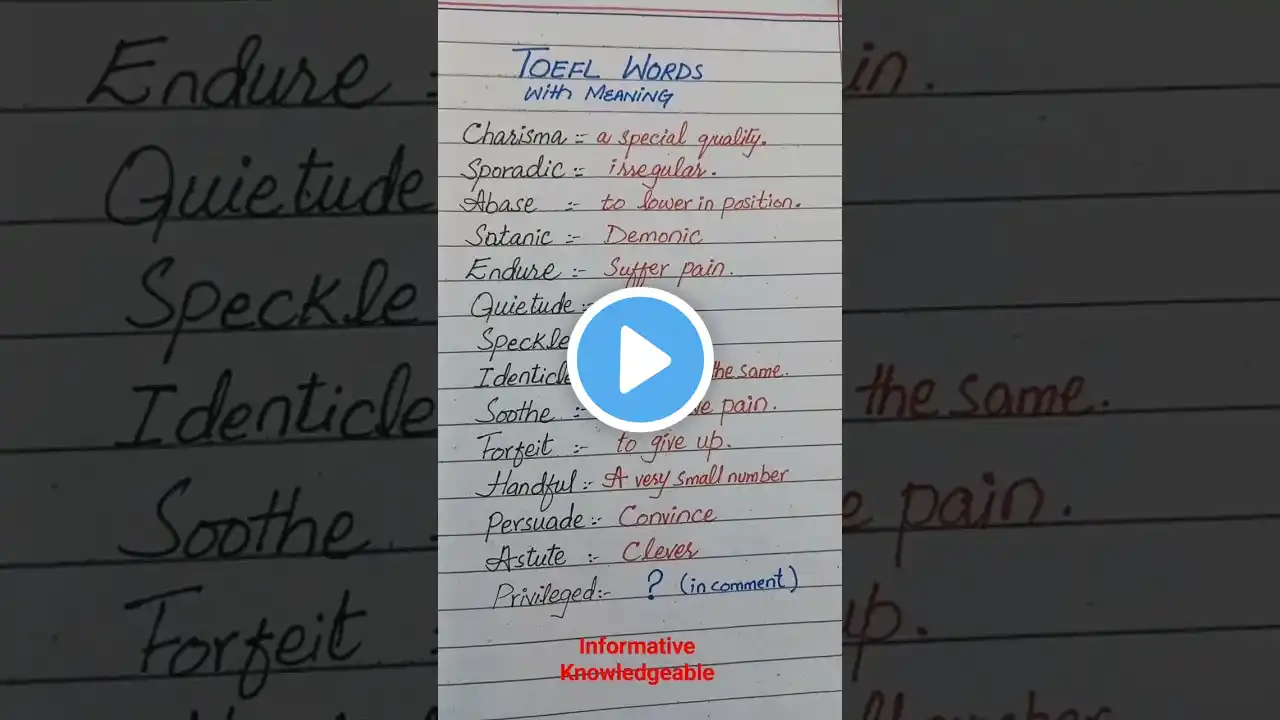 TOEFL WORDS
With MEANING
Charisma :- a special quality.
Sporadic :- irregular.
Abase :- to lower in position.
Satanic :- Demonic
Endure :- Suffer pain.
Quietude :-
Speckle
Identicle the same.
Soothe :- pain.
Forfeit :- to give up.
Handful :- A very small number
Persuade :- Convince
Astute :- Clever
Privileged:- ? (in comment)
Informative
Knowledgeable
Endure :
Quietude
Speckle
Identicle
Soothe
Forfeit
in.
the same.
pain.
up.